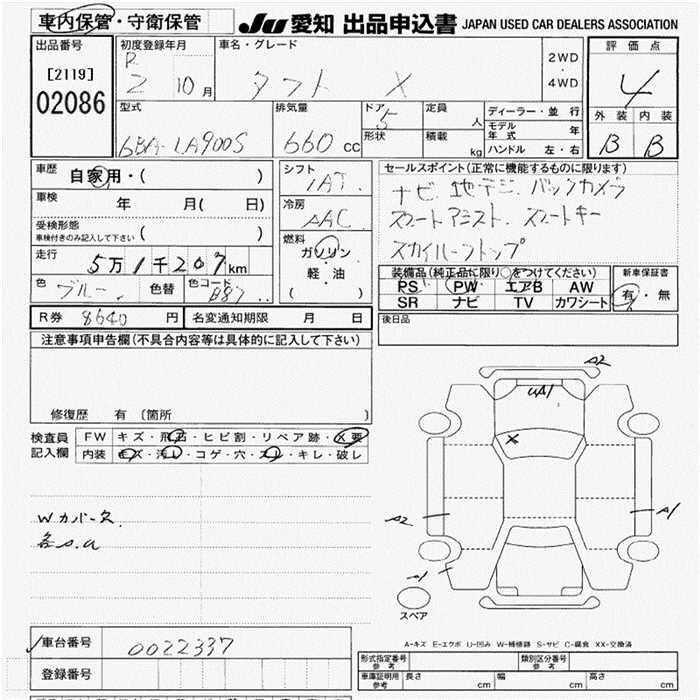 車内保管・守衛保管
JU 愛知 出品申込書 JAPAN USED CAR DEALERS ASSOCIATION
出品番号
[2119]
02086
初度登録年月
R
2 10月
車名・グレード
タフト X
2WD
・
4WD
評価点
4
外装 内装
B B
型式
6BA-LA900S
排気量
660 cc
ドア 5
形状
定員 人
積載 kg
ディーラー・並行
モデル年式 年
ハンドル 左・右
車歴
自家用・( )
車検
年 月( 日)
受検形態
車検付きのみ記入して下さい ( )
走行
5万1千207km
色
ブルー
色替
色コード
B87
シフト
IAT
冷房
AAC
燃料
ガソリン
・
軽・油
( )
セールスポイント(正常に機能するものに限ります)
ナビ 地デジ バックカメラ
スマートアシスト スマートキー
スカイルーフトップ
装備品(純正品に限り○をつけてください)
PS PW エアB AW
SR ナビ TV カワシート
新車保証書
有・無
R券 8640 円
名変通知期限 月 日
後日品
注意事項申告欄(不具合内容等は具体的に記入して下さい)
修復歴 有 (箇所 )
検査員
記入欄
FW キズ・飛石・ヒビ割・リペア跡・X要
内装 キズ・汚レ・コゲ・穴・スレ・キレ・破レ
Wカバー欠
各S.a
A2
UA1
X
A2
A1
A1
スペア
A-キズ E-エクボ U-凹み W-補修跡 S-サビ C-腐食 XX-交換済
車台番号
0022337
登録番号
形式指定番号
参考
類別区分番号
参考
車庫証明用
参考
長さ cm
幅 cm
高さ cm